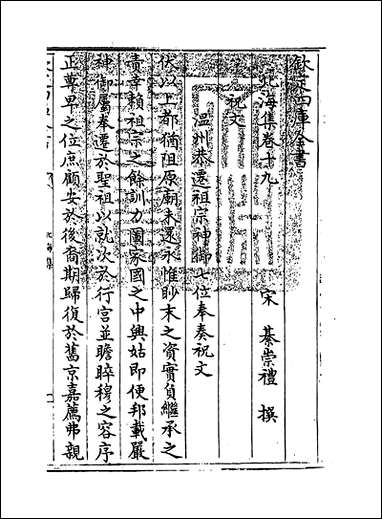 欽定四庫全書
北海集卷十九
宋 綦崇禮 撰
祝文
溫州恭遷祖宗神御七位奉奏祝文
伏以上都猶阻原廟未還永惟眇末之資實負繼承之
責幸賴祖宗之餘訓力圖家國之中興姑即便邦載嚴
神御屬奉遷於聖祖以就次於行宫並瞻睟穆之容序
正尊卑之位庶顧安於後裔期歸復於舊京嘉薦弗親